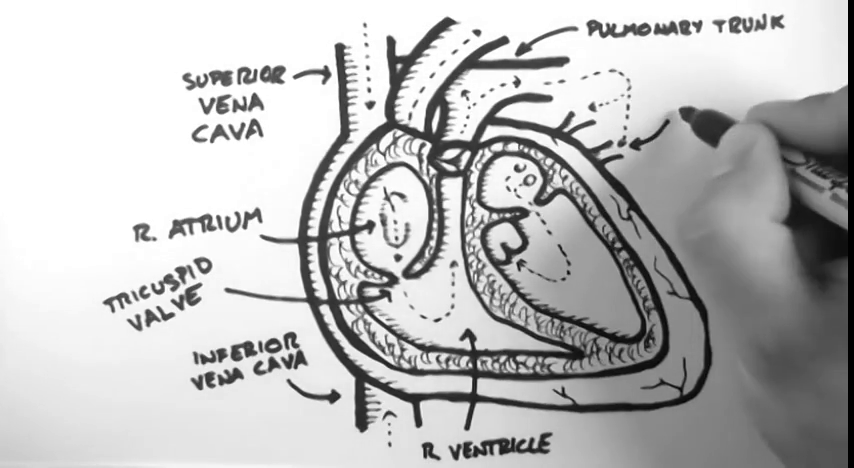 PULMONARY TRUNK
SUPERIOR
VENA
CAVA
R. ATRIUM
TRICUSPID
VALVE
INFERIOR
VENA CAVA
R VENTRICLE